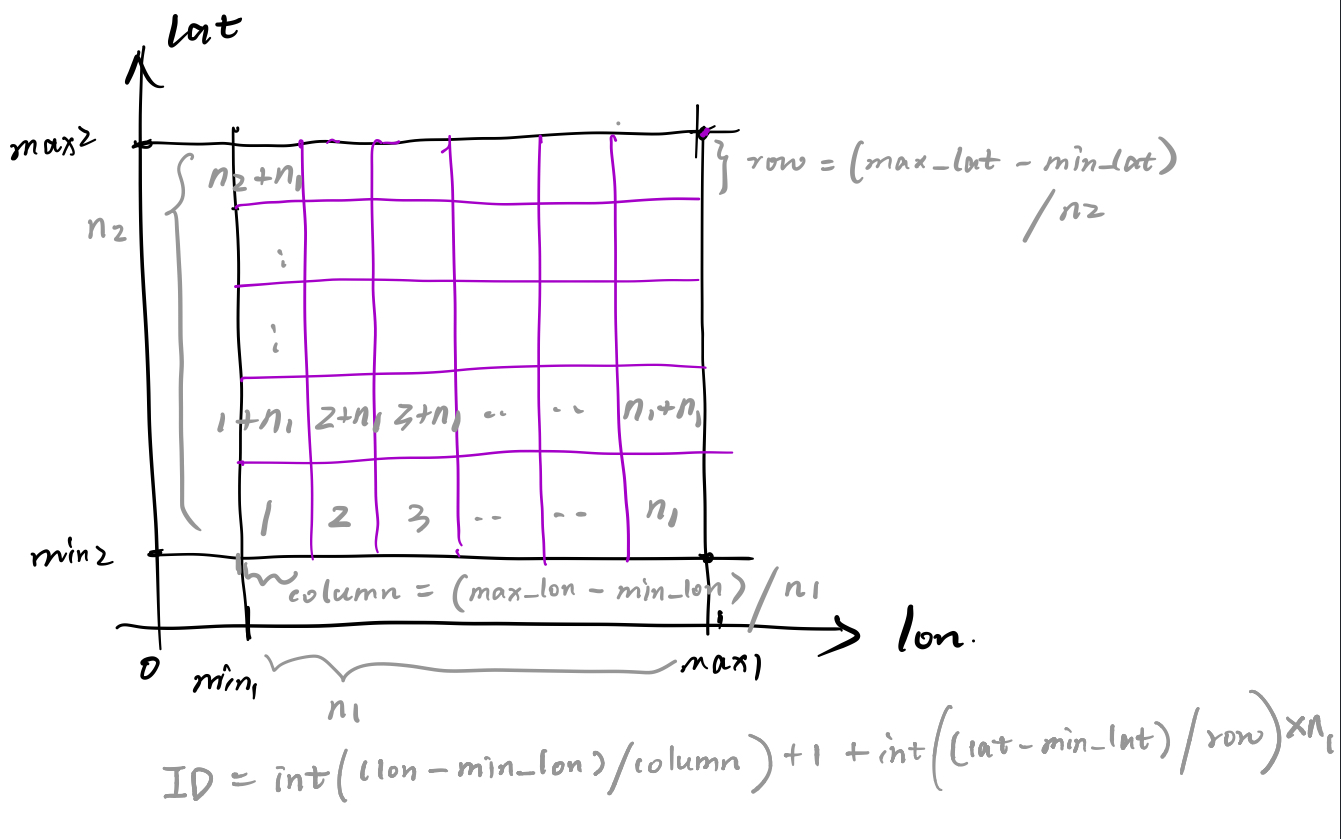 lat
max2
n2+n1
} row = (max_lat - min_lat)
/ n2
n2
⋮
⋮
1+n1 2+n1 3+n1 .. .. n1+n1
1 2 3 .. .. n1
min2
column = (max_lon - min_lon) / n1
lon.
0 min1 max1
n1
ID = int((lon - min_lon)/column) + 1 + int((lat - min_lat)/row) × n1